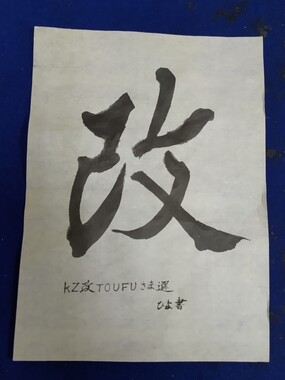 改
KZ改TOUFUさま選
ひよ書